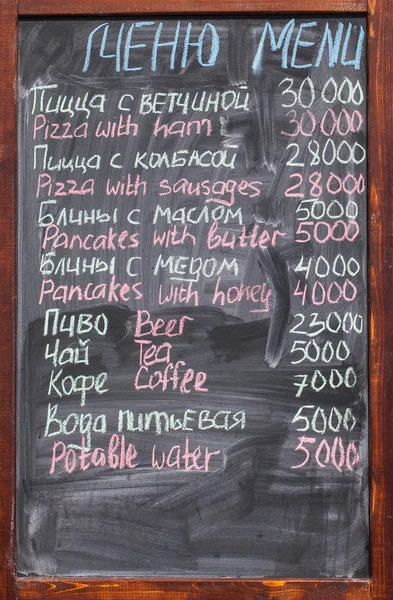 МЕНЮ MENU
Пицца с ветчиной 30000
Pizza with ham 30000
Пицца с колбасой 28000
Pizza with sausages 28000
Блины с маслом 5000
Pancakes with butter 5000
Блины с медом 4000
Pancakes with honey 4000
Пиво Beer 23000
Чай Tea 5000
Кофе Coffee 7000
Вода питьевая 5000
Potable water 5000